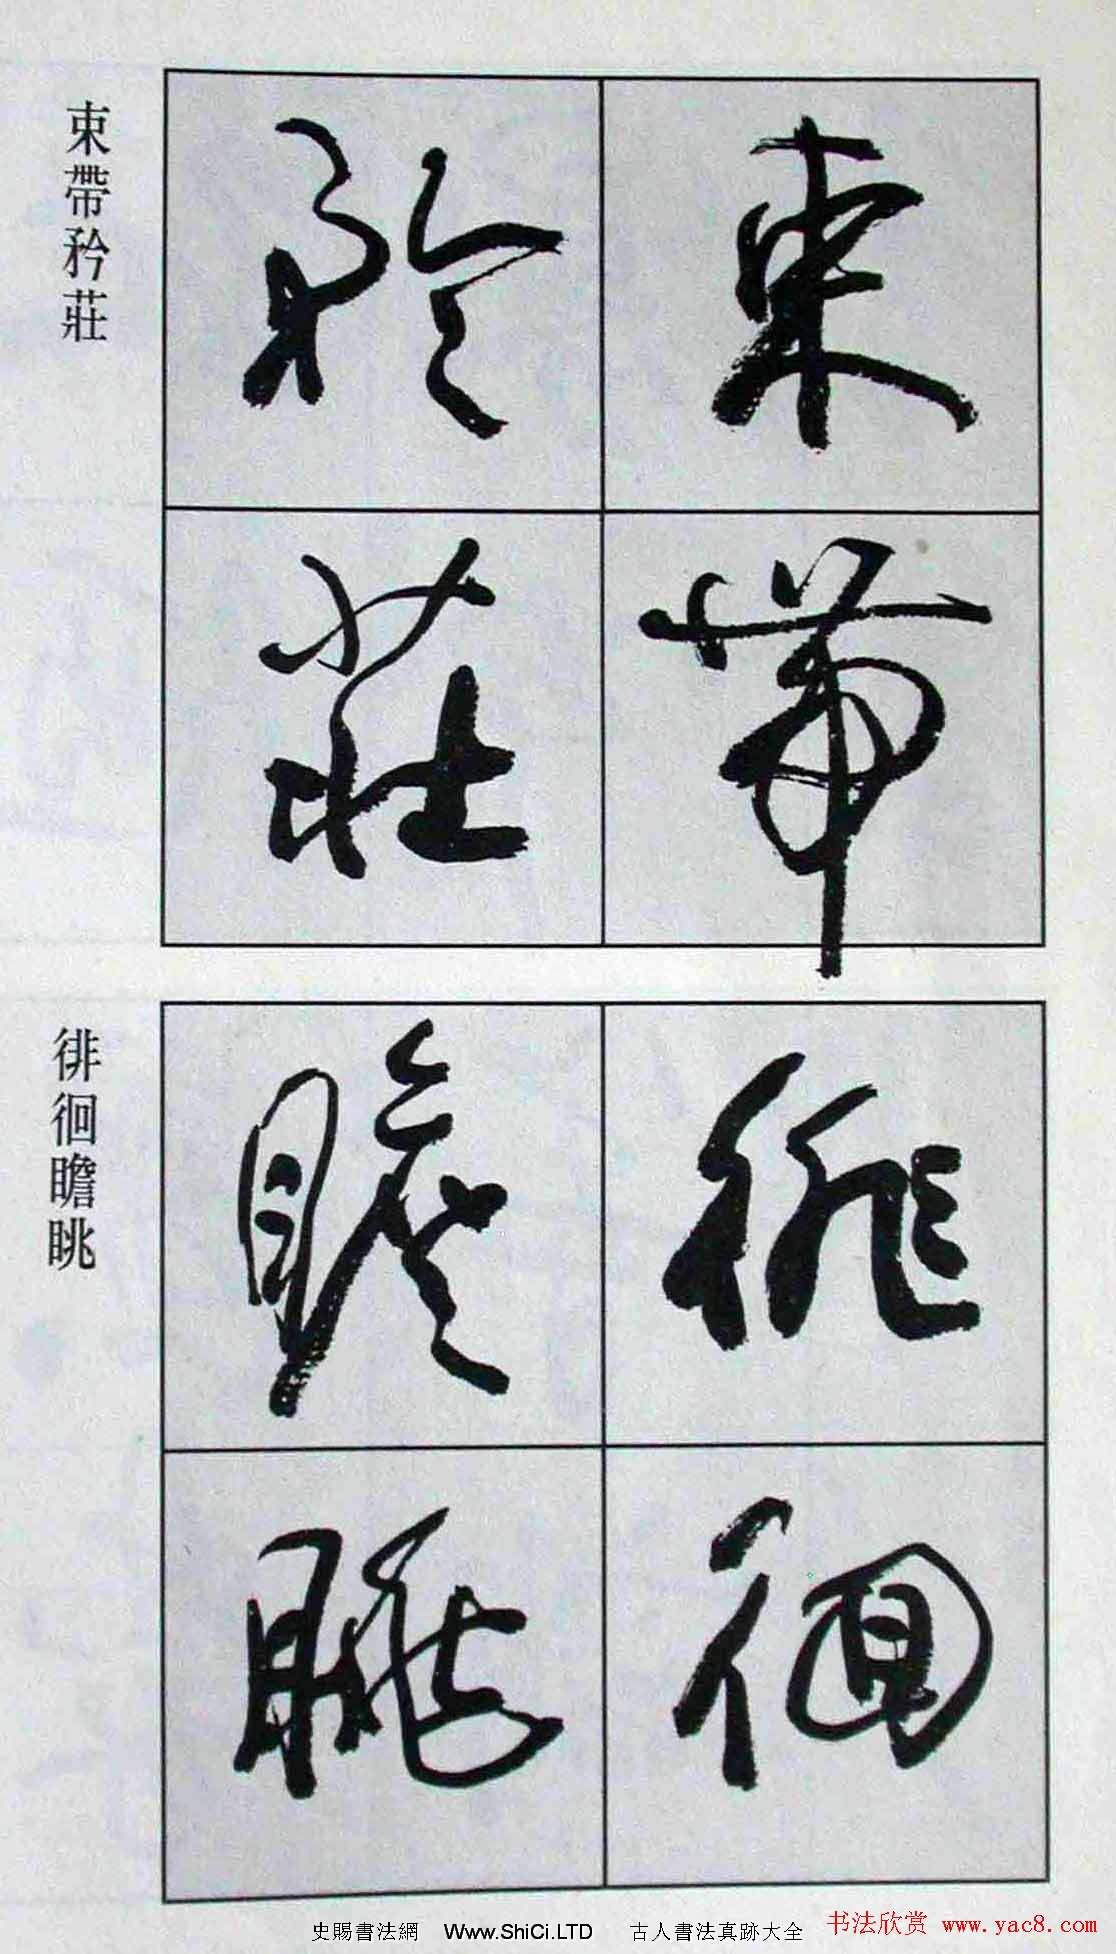 束帶
矜莊
束帶矜莊
徘徊
瞻眺
徘徊瞻眺
史賜書法網 Www.ShiCi.LTD 古人書法真跡大全
书法欣赏 www.yac8.com